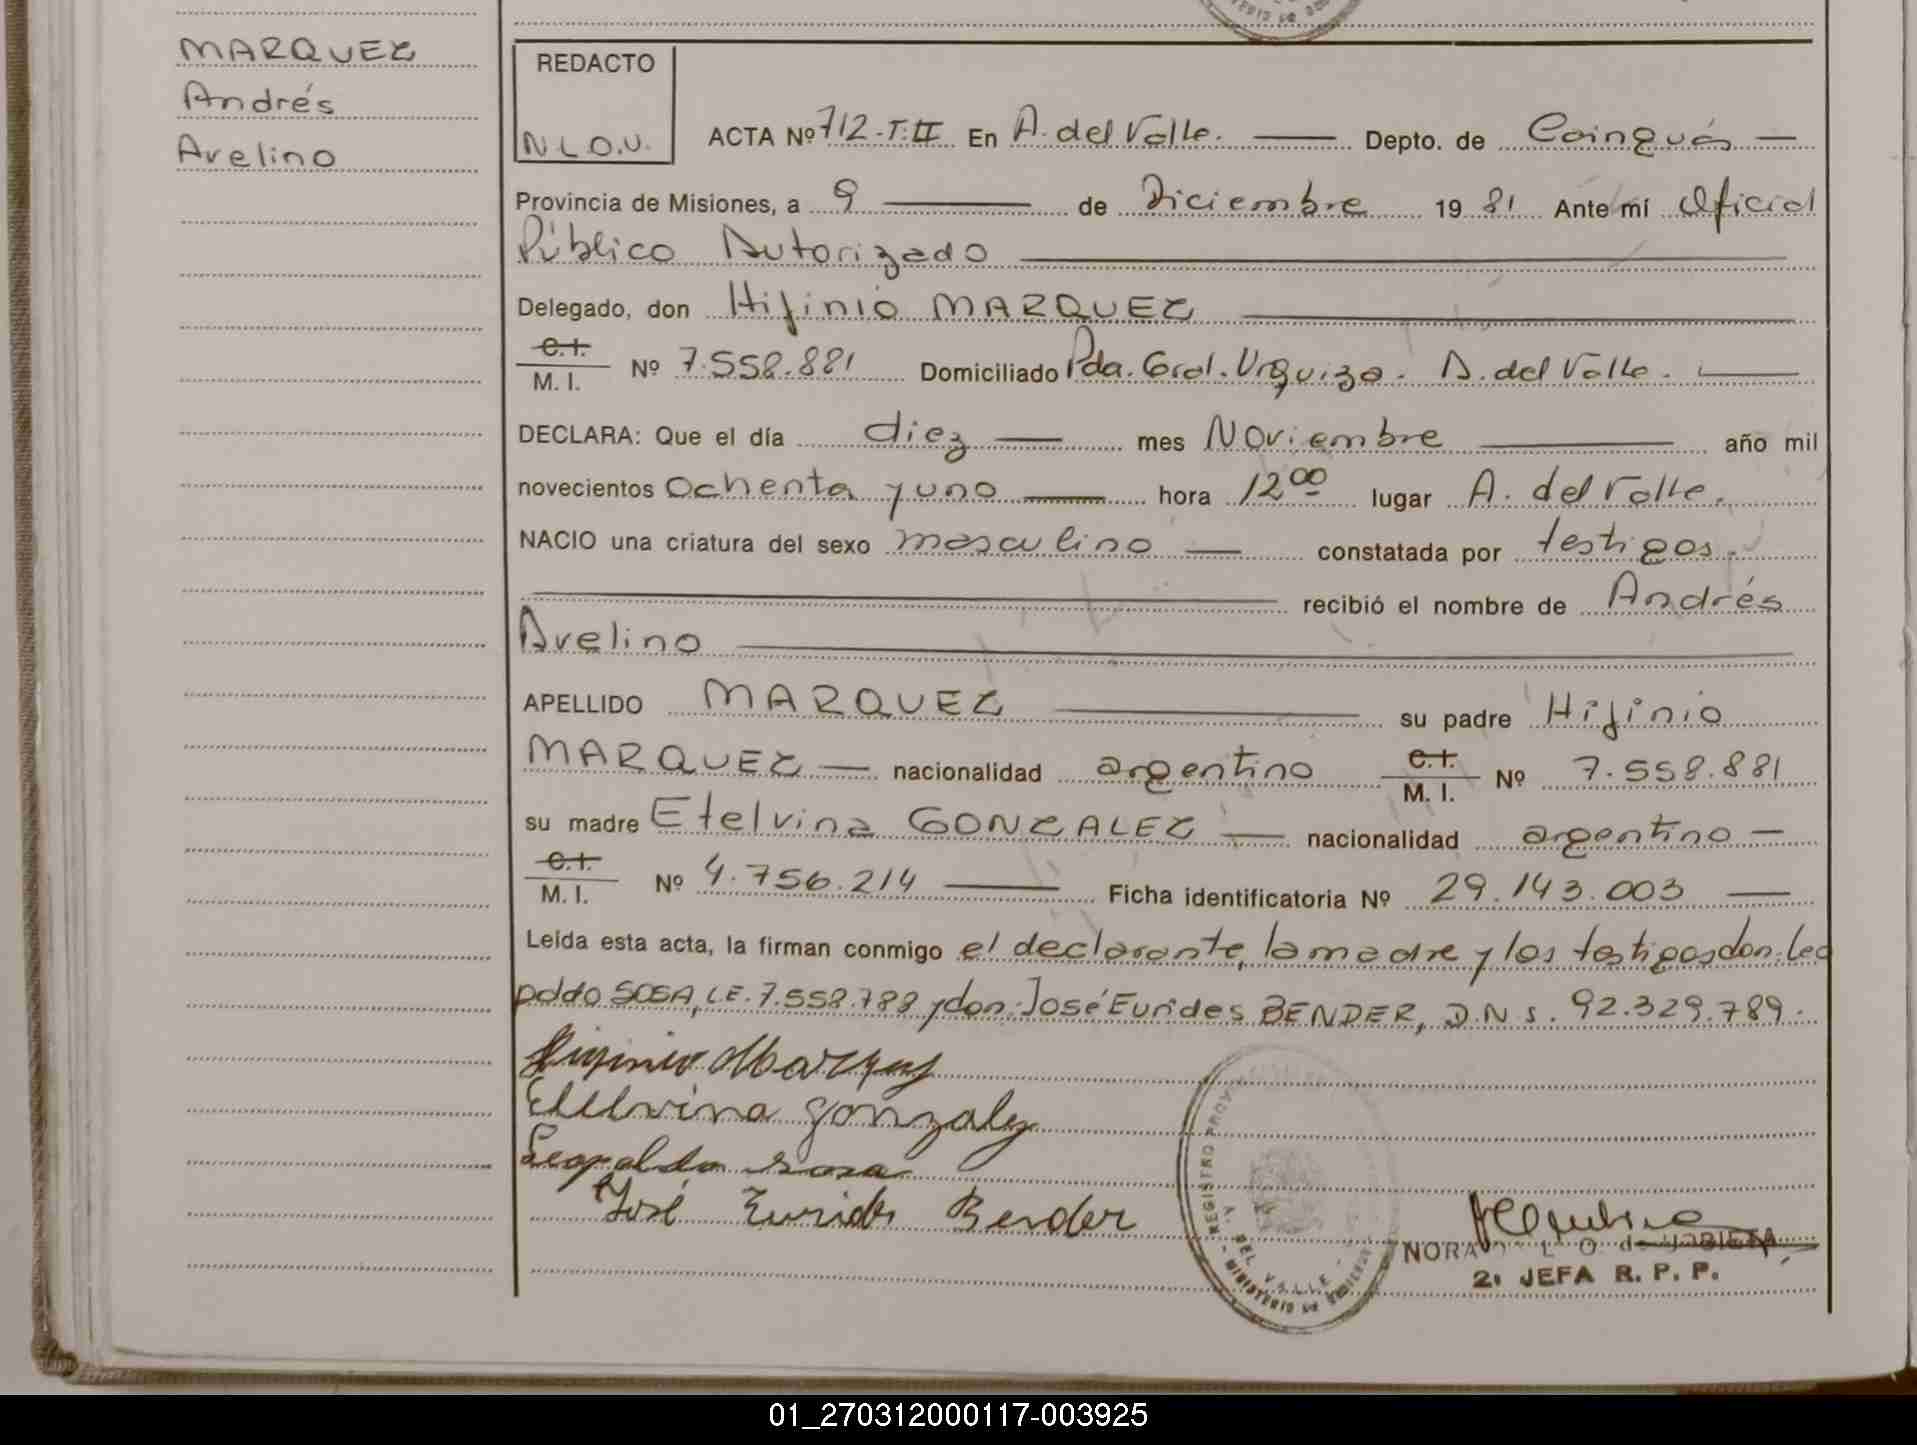 MARQUEZ
Andrés
Avelino
REDACTO
N L O.U.
ACTA Nº 712-T:II En A. del Valle. Depto. de Cainguás
Provincia de Misiones, a 9 de Diciembre 19 81 Ante mí Oficial
Público Autorizado
Delegado, don Hifinio MARQUEZ
C.I.
M. I. Nº 7.558.881 Domiciliado Pda. Gral. Urquiza. A. del Valle.
DECLARA: Que el día diez mes Noviembre año mil
novecientos Ochenta y uno hora 12 00 lugar A. del Valle.
NACIO una criatura del sexo masculino constatada por testigos.
recibió el nombre de Andrés
Avelino
APELLIDO MARQUEZ su padre Hifinio
MARQUEZ nacionalidad argentino C.I.
M. I. Nº 7.558.881
su madre Etelvina GONZALEZ nacionalidad argentino
C.I.
M. I. Nº 4.756.214 Ficha identificatoria Nº 29.143.003
Leída esta acta, la firman conmigo el declarante, la madre y los testigos don: Leo
poldo SOSA, L.E. 7.558.788 y don: José Eurides BENDER, D.N I. 92.329.789.
Higinio Marques
Etelvina gonzalez
Leopoldo sosa
José Eurides Bender
REGISTRO PROV
A. DEL VALLE
MINISTERIO DE
NORA L. O. de URBIETA
2ª JEFA R. P. P.
01_270312000117-003925